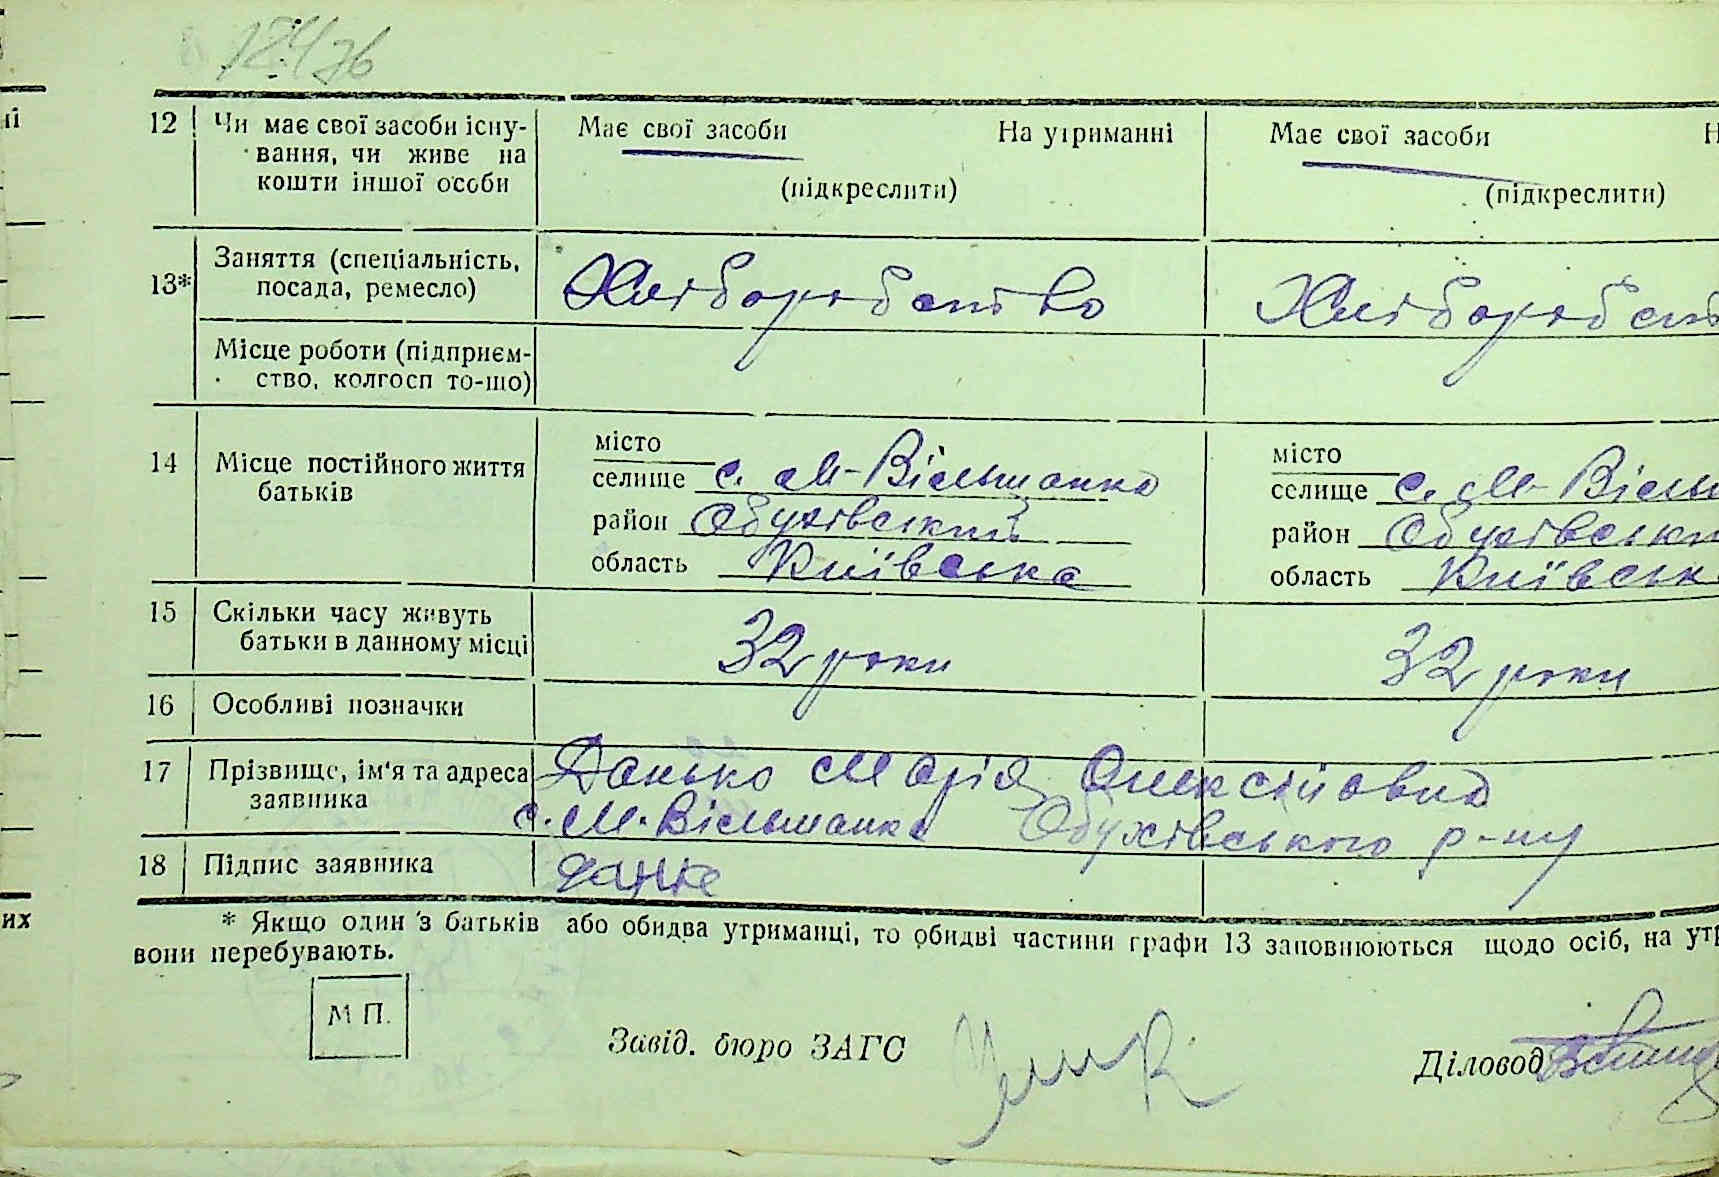 12 Чи має свої засоби існу- Має свої засоби На утриманні Має свої засоби Н
вання, чи живе на
кошти іншої особи (підкреслити) (підкреслити)
13* Заняття (спеціальність,
посада, ремесло) Хліборобство Хліборобст
Місце роботи (підприєм-
ство, колгосп то-що)
14 Місце постійного життя
батьків
місто місто
селище с. М-Вільшанка селище с. М-Вільш
район Обухівський район Обухівськи
область Київська область Київськ
15 Скільки часу живуть
батьки в данному місці 32 роки 32 роки
16 Особливі позначки
17 Прізвище, ім'я та адреса Данько Марія Олексіївна
заявника с. М. Вільшанка Обухівського р-ну
18 Підпис заявника Данко
их * Якщо один з батьків або обидва утриманці, то обидві частини графи 13 заповнюються щодо осіб, на утр
вони перебувають.
М П.
Завід. бюро ЗАГС
Діловод